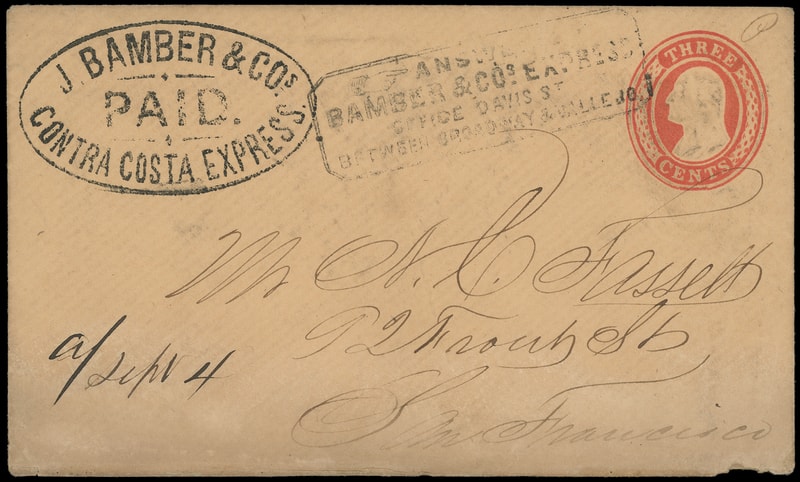 J. BAMBER & COS
PAID.
CONTRA COSTA EXPRESS.
ANSWE
BAMBER & COS EXPRESS
OFFICE DAVIS ST
BETWEEN BROADWAY & VALLEJO.
THREE
CENTS
Mr N. C. Fassett
92 Front St
San Francisco
a/ Sept 4